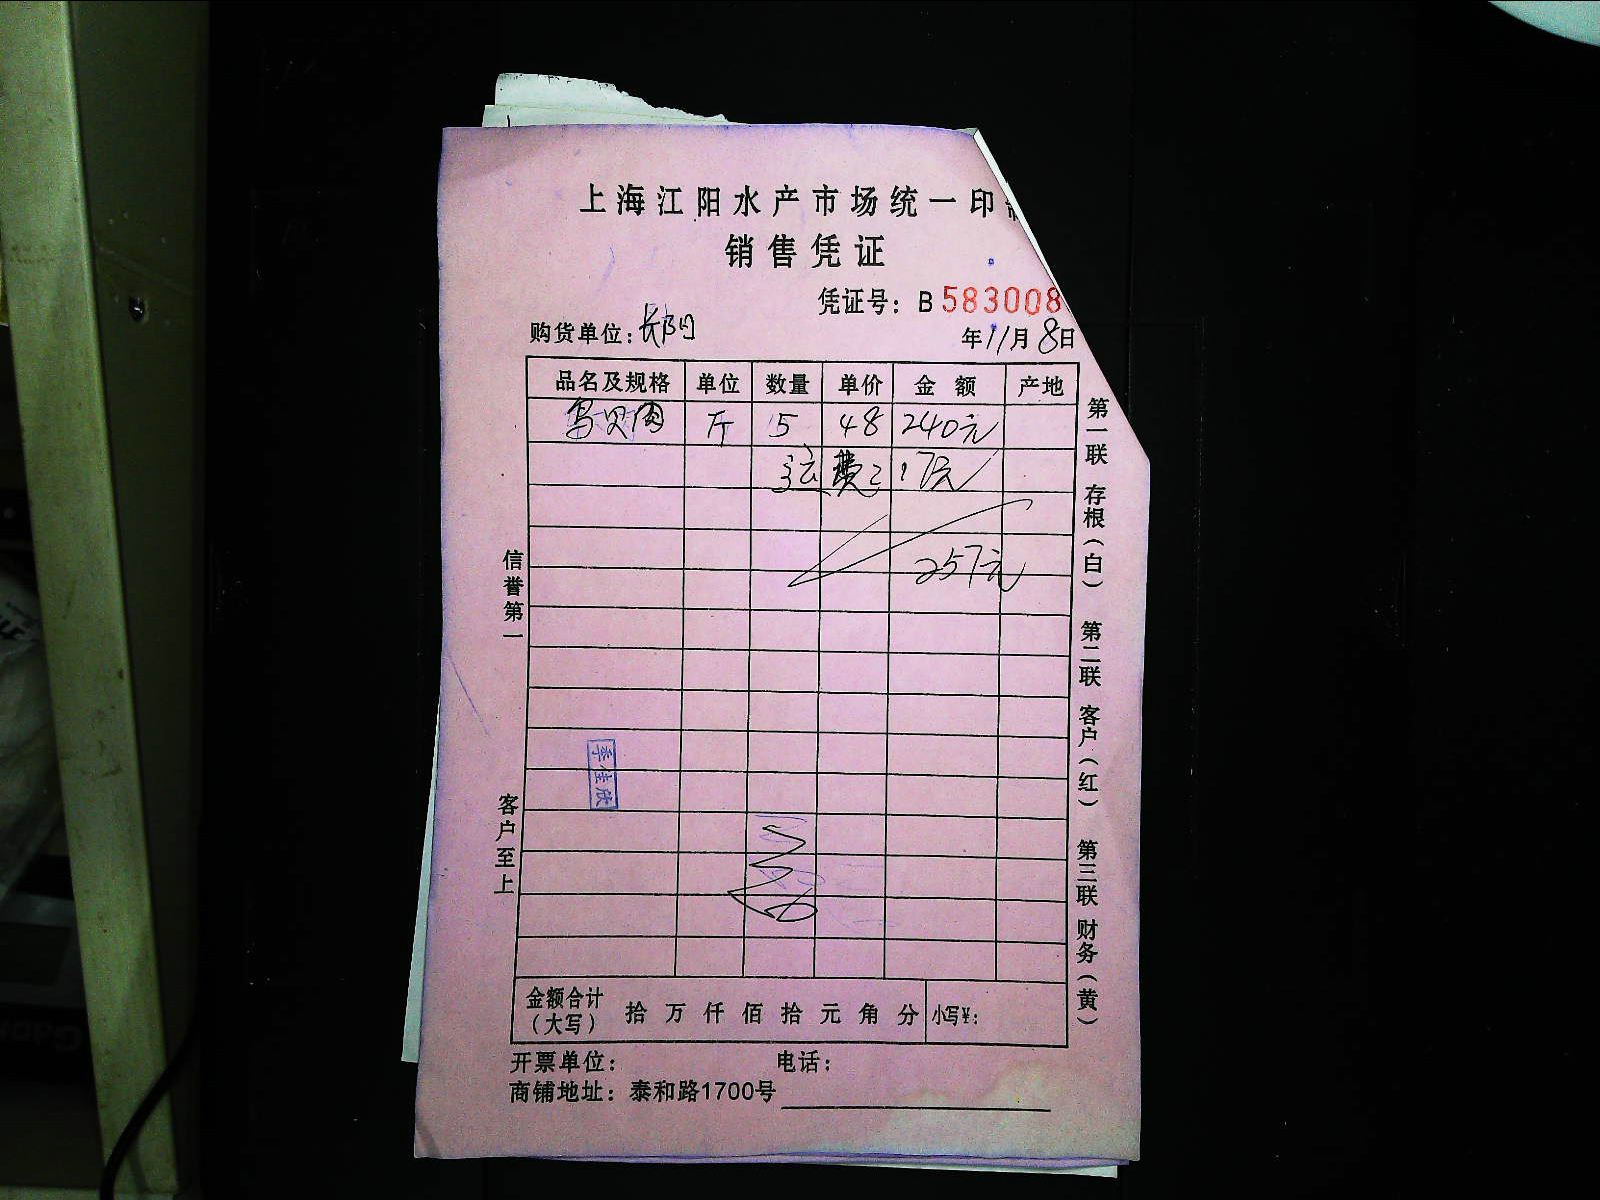 上海江阳水产市场统一印
销售凭证
凭证号：B583008
购货单位：长阳
年11月8日
品名及规格 单位 数量 单价 金额 产地
鸟贝肉 斤 5 48 240元
运费：17元
257元
信誉第一
客户至上
第一联 存根（白） 第二联 客户（红） 第三联 财务（黄）
季佳欣
金额合计（大写） 拾 万 仟 佰 拾 元 角 分 小写¥：
开票单位： 电话：
商铺地址：泰和路1700号